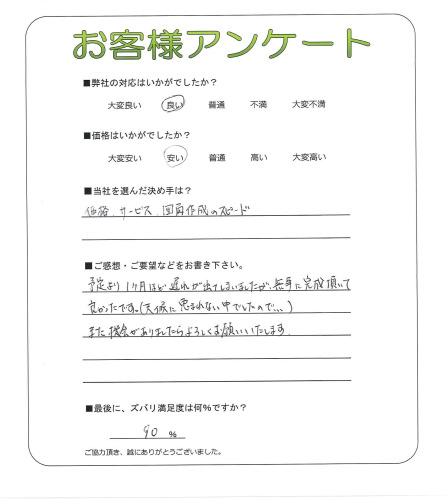 お客様アンケート
■弊社の対応はいかがでしたか？
大変良い 良い 普通 不満 大変不満
■価格はいかがでしたか？
大変安い 安い 普通 高い 大変高い
■当社を選んだ決め手は？
価格、サービス、図面作成のスピード
■ご感想・ご要望などをお書き下さい。
予定より1ヶ月ほど遅れが出てしまいましたが、無事に完成頂いて
良かったです。(天候に恵まれない中でしたので、、、)
また機会がありましたらよろしくお願いいたします
■最後に、ズバリ満足度は何％ですか？
90 %
ご協力頂き、誠にありがとうございました。